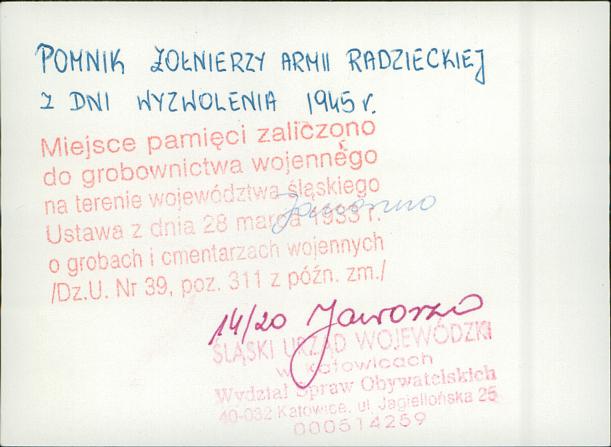 POMNIK ŻOŁNIERZY ARMII RADZIECKIEJ
Z DNI WYZWOLENIA 1945 r.
Miejsce pamięci zaliczono
do grobownictwa wojennego
na terenie województwa śląskiego
Jaworzno
Ustawa z dnia 28 marca 1933 r.
o grobach i cmentarzach wojennych
/Dz.U. Nr 39, poz. 311 z późn. zm./
14/20 Jaworzno
ŚLĄSKI URZĄD WOJEWÓDZKI
w Katowicach
Wydział Spraw Obywatelskich
40-032 Katowice, ul. Jagiellońska 25
000514259